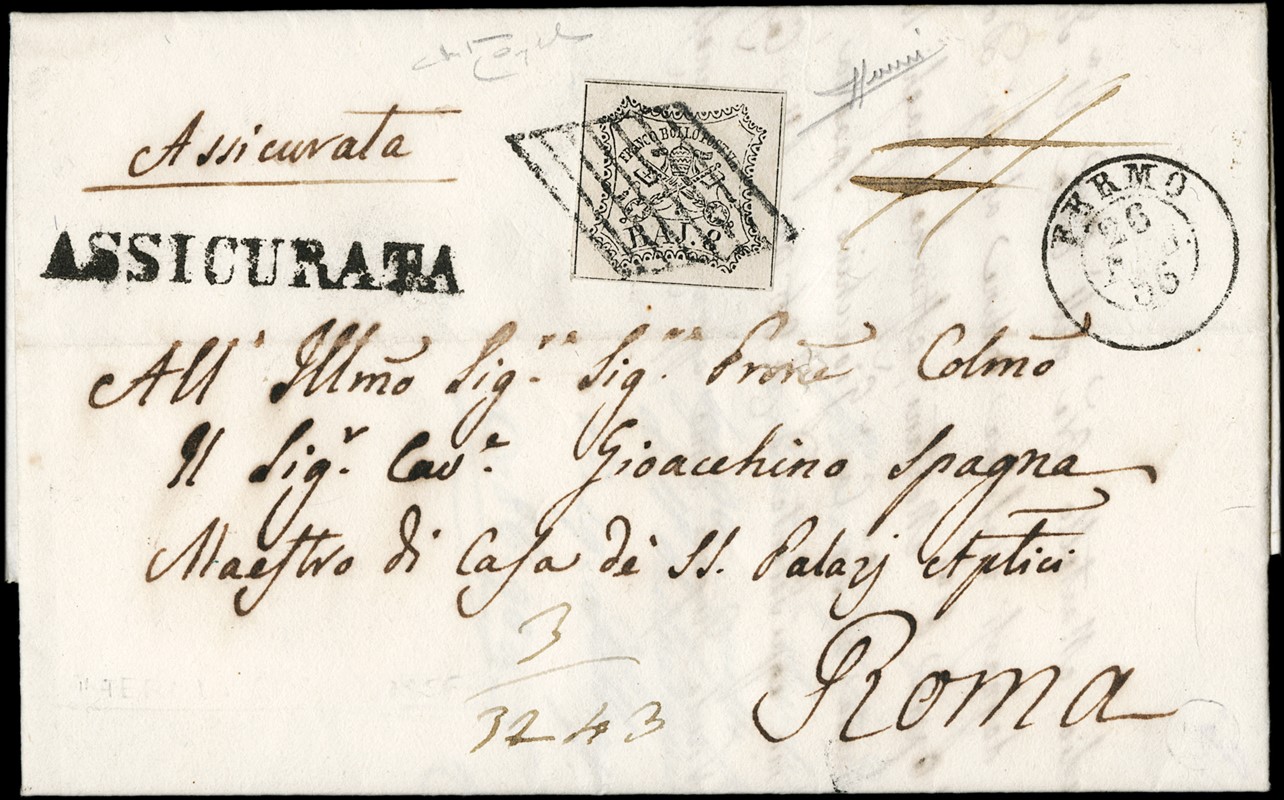 Assicurata
ASSICURATA
FRANCO BOLLO POSTALE
BAJ. 8
FERMO
26
56
All' Illmo Sig.re Sig.re Prone Colmo
Il Sig.r Cav.e Gioacchino Spagna
Maestro di Casa de SS. Palazj Aplici
Roma
3
3243